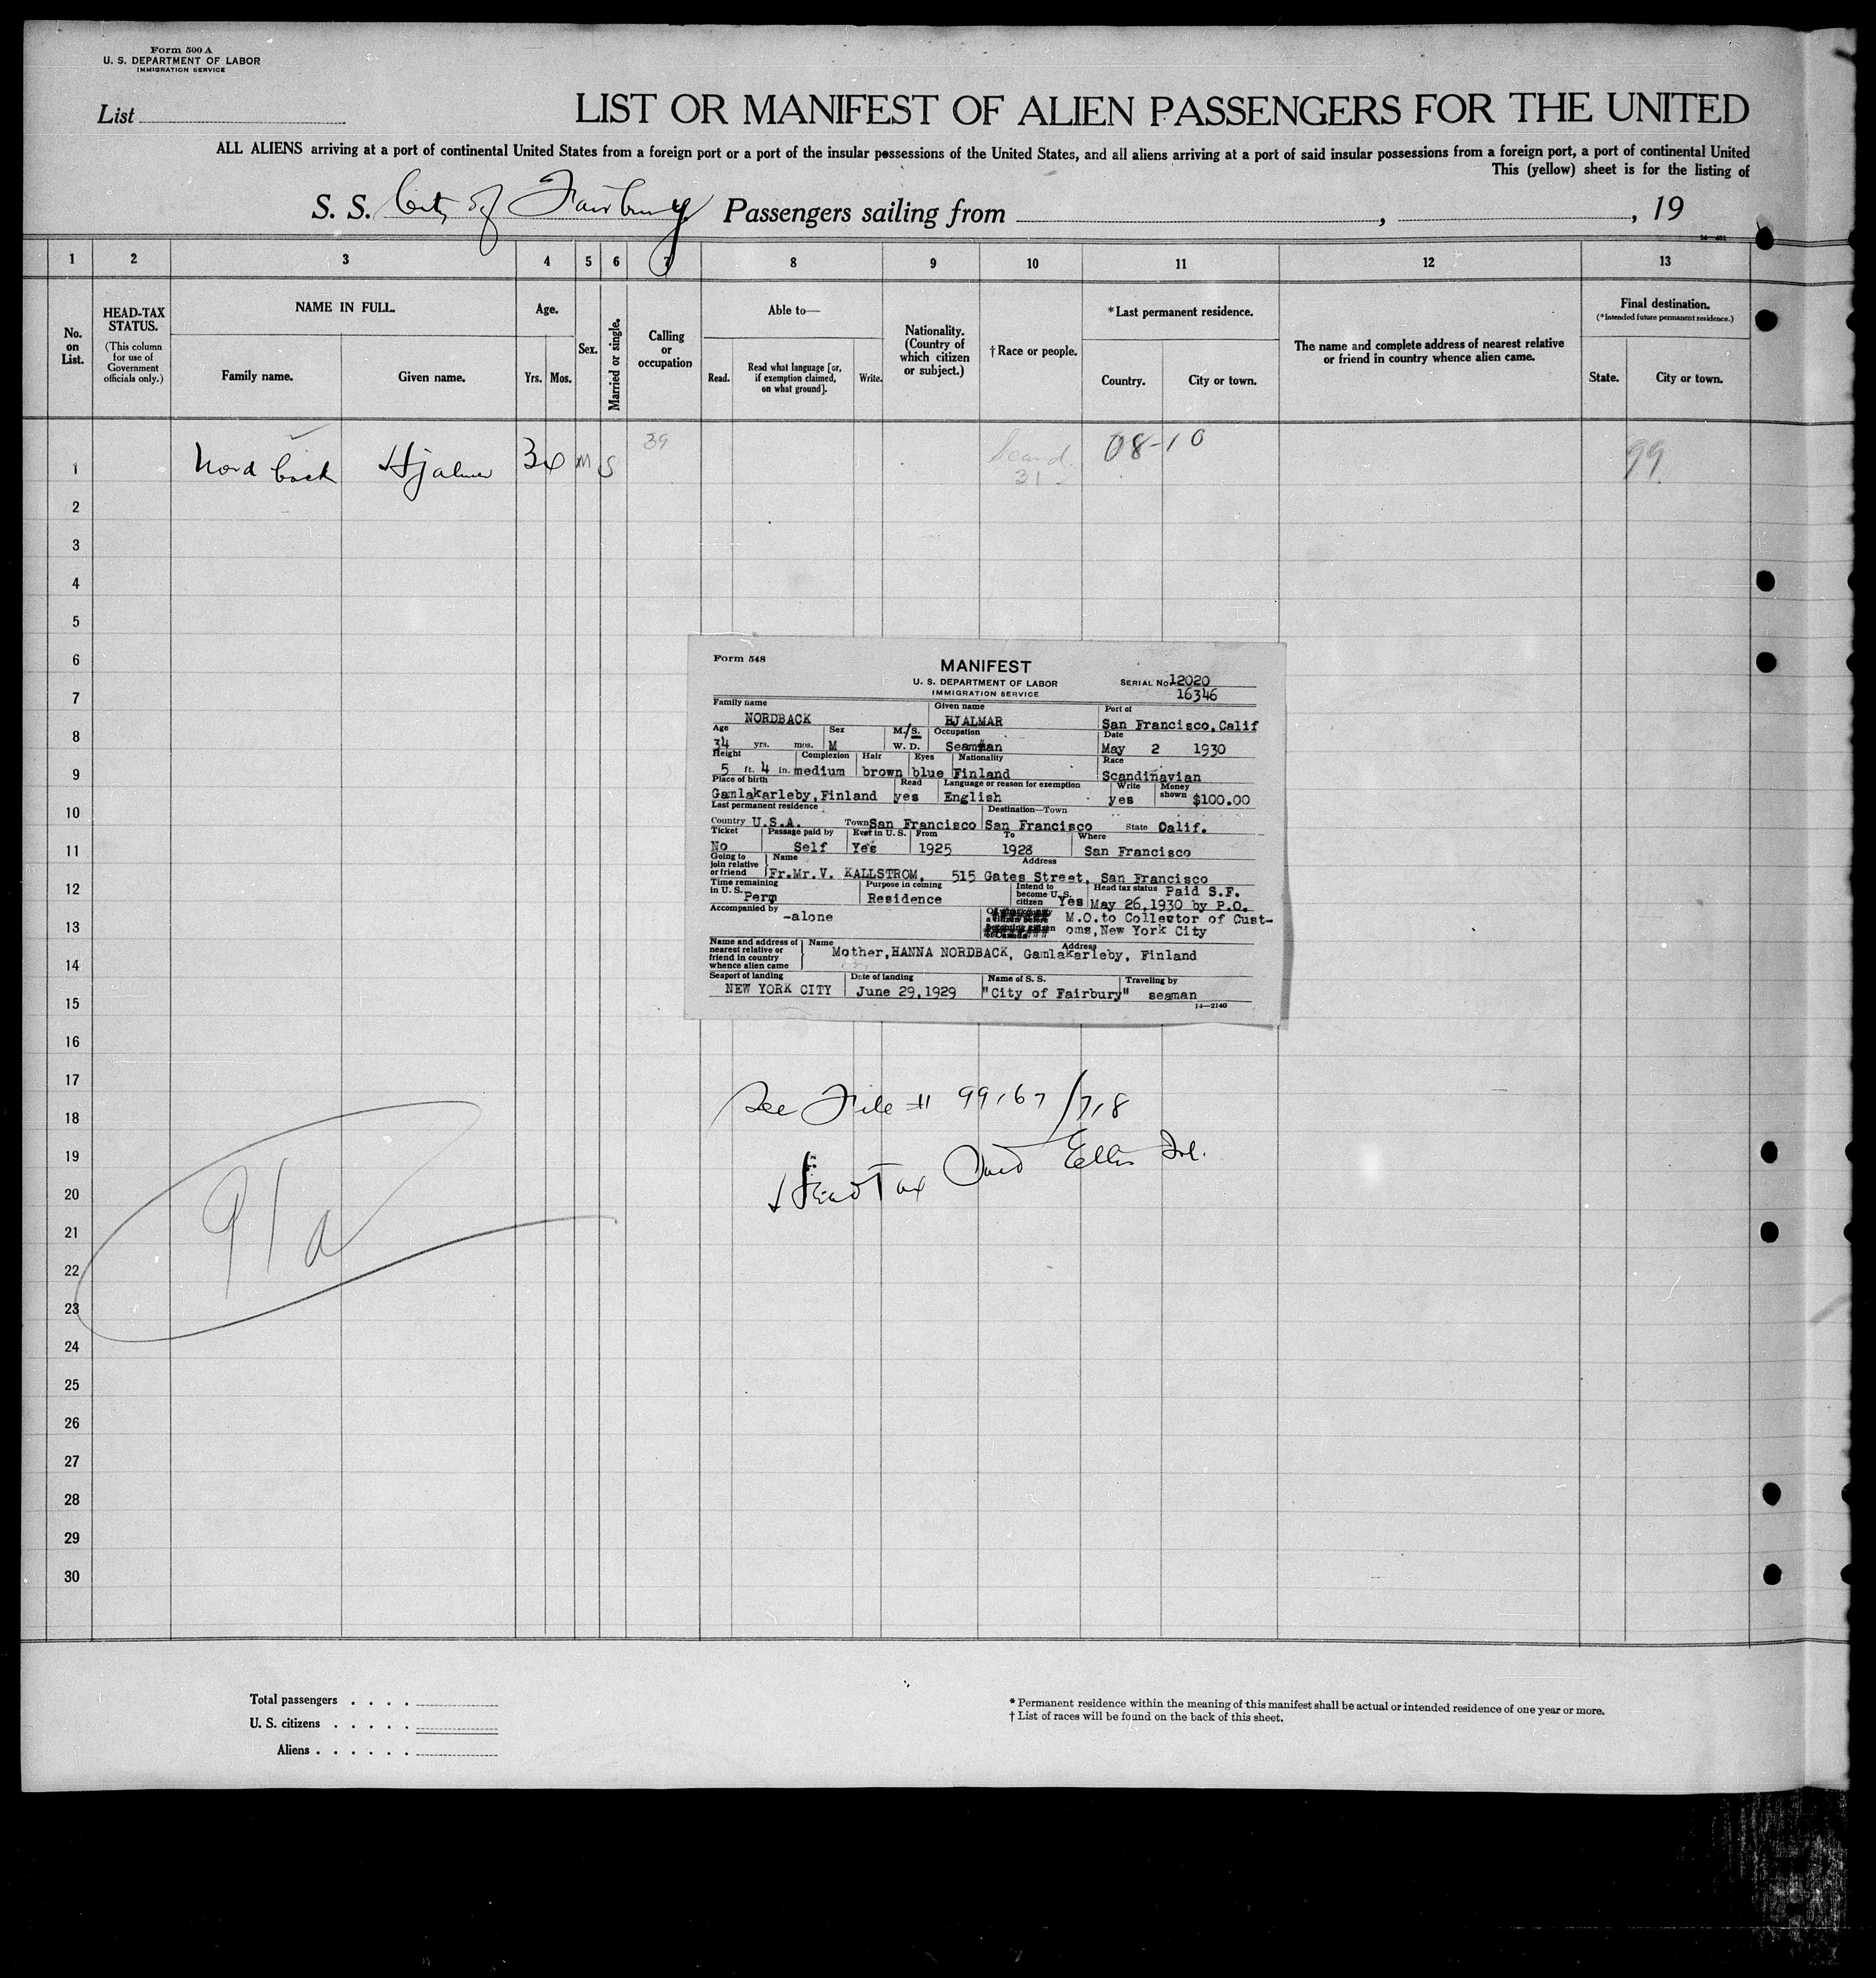 Form 500 A
U. S. DEPARTMENT OF LABOR
IMMIGRATION SERVICE
List
LIST OR MANIFEST OF ALIEN PASSENGERS FOR THE UNITED
ALL ALIENS arriving at a port of continental United States from a foreign port or a port of the insular possessions of the United States, and all aliens arriving at a port of said insular possessions from a foreign port, a port of continental United
This (yellow) sheet is for the listing of
S. S. City of Fairbury Passengers sailing from , , 19
1 2 3 4 5 6 7 8 9 10 11 12 13
No. on List.
HEAD-TAX STATUS.
(This column for use of Government officials only.)
NAME IN FULL.
Family name. Given name.
Age.
Yrs. Mos.
Sex.
Married or single.
Calling or occupation
Able to—
Read. Read what language [or, if exemption claimed, on what ground]. Write.
Nationality. (Country of which citizen or subject.)
† Race or people.
* Last permanent residence.
Country. City or town.
The name and complete address of nearest relative or friend in country whence alien came.
Final destination.
(* Intended future permanent residence.)
State. City or town.
1 Nordback Hjalmar 34 M S 39 Scand. 31 08-10 99
2
3
4
5
6
7
8
9
10
11
12
13
14
15
16
17
18
19
20
21
22
23
24
25
26
27
28
29
30
Form 548
MANIFEST
U. S. DEPARTMENT OF LABOR
IMMIGRATION SERVICE
SERIAL No 12020
16346
Family name Given name Port of
NORDBACK HJALMAR San Francisco, Calif
Age Sex M./S. Occupation Date
34 yrs. mos. M W. D. Seaman May 2 1930
Height Complexion Hair Eyes Nationality Race
5 ft. 4 in. medium brown blue Finland Scandinavian
Place of birth Read Language or reason for exemption Write Money shown
Gamlakarleby, Finland yes English yes $100.00
Last permanent residence Destination—Town
Country U.S.A. Town San Francisco San Francisco State Calif.
Ticket Passage paid by Ever in U. S. From To Where
No Self Yes 1925 1928 San Francisco
Going to join relative or friend Name Address
Fr.Mr.V. KALLSTROM, 515 Gates Street, San Francisco
Time remaining in U. S. Purpose in coming Intend to become U. S. citizen Head tax status Paid S.F.
Perm Residence Yes May 26,1930 by P.O.
Accompanied by
-alone M.O.to Collevtor of Cust-
oms, New York City
Name and address of nearest relative or friend in country whence alien came Name Address
Mother, HANNA NORDBACK, Gamlakarleby, Finland
Seaport of landing Date of landing Name of S. S. Traveling by
NEW YORK CITY June 29,1929 "City of Fairbury" seaman
14—2140
See File # 99167/718
Head Tax Paid Ellis Isl.
Total passengers . . . .
U. S. citizens . . . . .
Aliens . . . . . .
* Permanent residence within the meaning of this manifest shall be actual or intended residence of one year or more.
† List of races will be found on the back of this sheet.